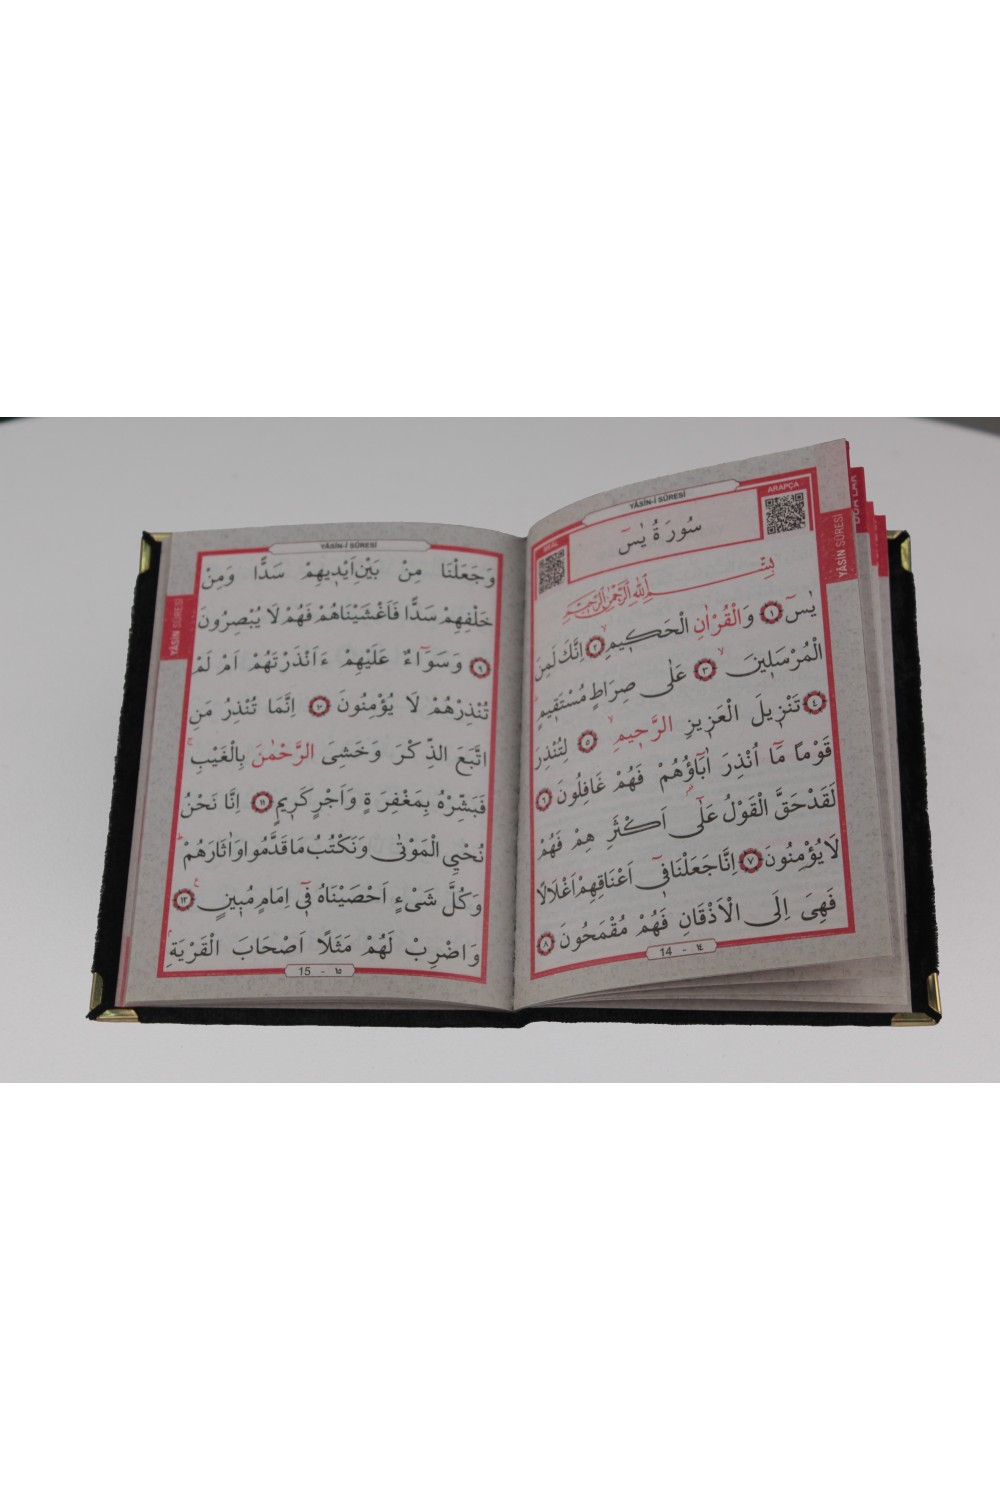 YÂSİN-İ SÛRESİ
ARAPÇA
سُورَةُ يٰسٓ
بِسْمِ اللّٰهِ الرَّحْمٰنِ الرَّحٖيمِ
يٰسٓ ١ وَالْقُرْاٰنِ الْحَكٖيمِ ٢ اِنَّكَ لَمِنَ
الْمُرْسَلٖينَ ٣ عَلٰى صِرَاطٍ مُسْتَقٖيمٍ
٤ تَنْزٖيلَ الْعَزٖيزِ الرَّحٖيمِ ٥ لِتُنْذِرَ
قَوْمًا مَٓا اُنْذِرَ اٰبَٓاؤُ۬هُمْ فَهُمْ غَافِلُونَ ٦
لَقَدْ حَقَّ الْقَوْلُ عَلٰٓى اَكْثَرِ هِمْ فَهُمْ
لَا يُؤْمِنُونَ ٧ اِنَّا جَعَلْنَا فٖٓى اَعْنَاقِهِمْ اَغْلَالًا
فَهِىَ اِلَى الْاَذْقَانِ فَهُمْ مُقْمَحُونَ ٨
14 - ١٤
YÂSİN SÛRESİ
DUALAR
YÂSİN-İ SÛRESİ
وَجَعَلْنَا مِنْ بَيْنِ اَيْدٖيهِمْ سَدًّا وَمِنْ
خَلْفِهِمْ سَدًّا فَاَغْشَيْنَاهُمْ فَهُمْ لَا يُبْصِرُونَ
٩ وَسَوَٓاءٌ عَلَيْهِمْ ءَاَنْذَرْتَهُمْ اَمْ لَمْ
تُنْذِرْهُمْ لَا يُؤْمِنُونَ ١٠ اِنَّمَا تُنْذِرُ مَنِ
اتَّبَعَ الذِّكْرَ وَخَشِىَ الرَّحْمٰنَ بِالْغَيْبِ
فَبَشِّرْهُ بِمَغْفِرَةٍ وَاَجْرٍ كَرٖيمٍ ١١ اِنَّا نَحْنُ
نُحْيِ الْمَوْتٰى وَنَكْتُبُ مَا قَدَّمُوا وَاٰثَارَهُمْ
وَكُلَّ شَىْءٍ اَحْصَيْنَاهُ فٖٓى اِمَامٍ مُبٖينٍ ١٢
وَاضْرِبْ لَهُمْ مَثَلًا اَصْحَابَ الْقَرْيَةِ
15 - ١٥
YÂSİN SÛRESİ